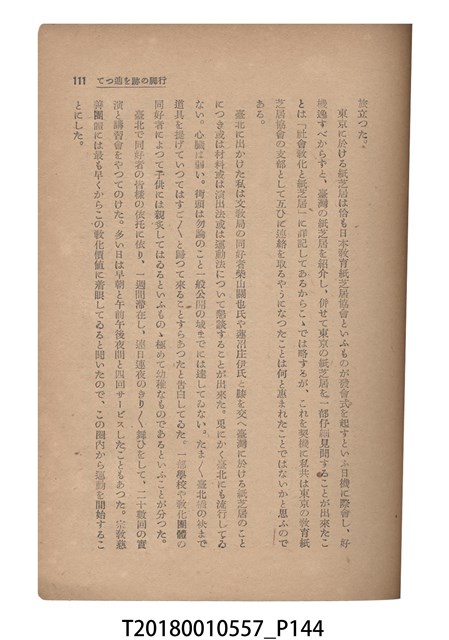 行脚の跡を辿つて 111
旅立つた。
東京に於ける紙芝居は恰も日本教育紙芝居協會といふものが發會式を起すといふ日機に際會し、好
機逸すべからずと、臺灣の紙芝居を紹介し、併せて東京の紙芝居を一部仔細見聞することが出來たこ
とは「社會教化と紙芝居」に詳記してあるからこゝでは略するが、これを契機に私共は東京の教育紙
芝居協會の支部として互ひに連絡を取るやうになつたことは何と惠まれたことではないかと思ふので
ある。
臺北に出かけた私は文教局の同好者柴山關也氏や蓮沼庄伊氏と錢を交へ臺灣に於ける紙芝居のこと
につき或は材料或は演出法或は運動法について懇談することが出來た。兎にかく臺北にも流行してゐ
ない。心臟は弱い。街頭は勿論のこと一般公開の域までには達してゐない。たま〳〵臺北橋の袂まで
道具を提げていつてはすご〳〵と歸つて來ることすらあつたと告白してゐた。一部學校や教化團體の
同好者によつて子供には親炙してはゐるといふものゝ極めて幼稚なものであるといふことが分つた。
臺北で同好者の皆樣の依托に依り、一週間滯在し、連日連夜のきり〳〵舞ひをして、二十數回の實
演と講習會をやつてのけた。多い日は早朝と午前午後夜間と四回サービスしたこともあつた。宗教慈
善團體には最も早くからこの教化價値に着眼してゐると聞いたので、この圈內から運動を開始するこ
とにした。
T20180010557_P144